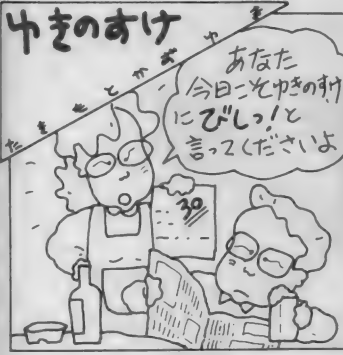 ゆきのすけ
たきもとかずゆき
あなた
今日こそゆきのすけ
にびしっ!と
言ってくださいよ
30